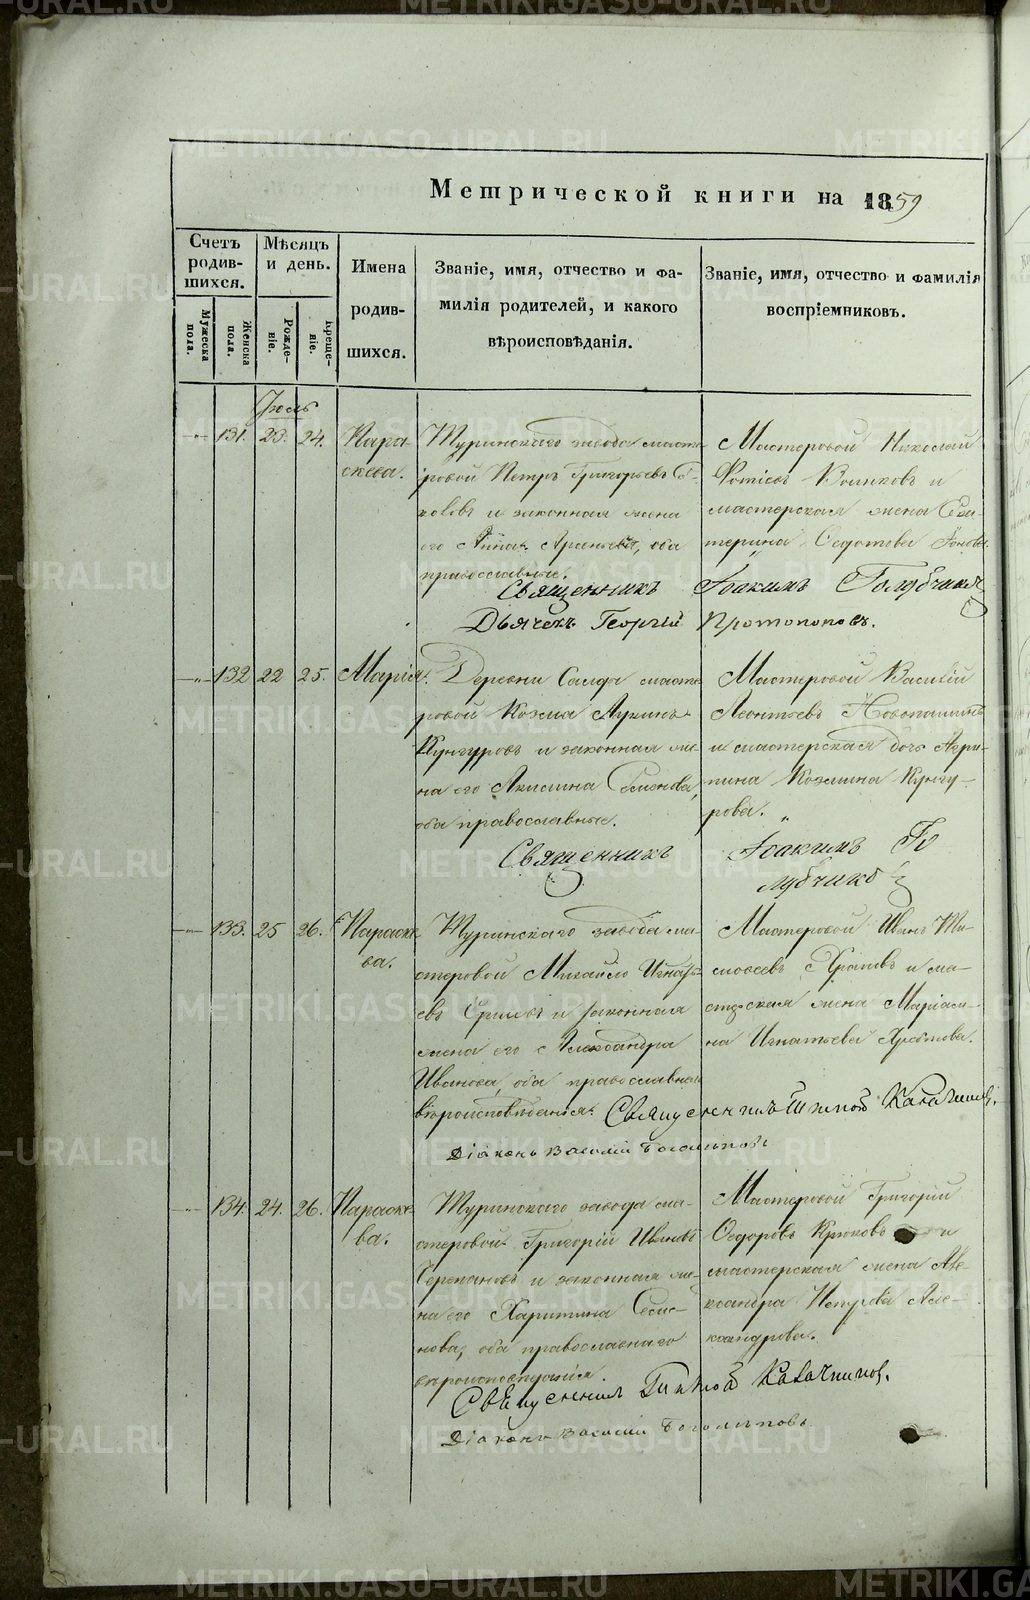 Метрической книги на 1859
Счетъ родившихся.
Мѣсяцъ и день.
Имена родившихся.
Званіе, имя, отчество и фамилія родителей, и какого вѣроисповѣданія.
Званіе, имя, отчество и фамилія воспріемниковъ.
Мужеска пола.
Женска пола.
Рожденіе.
Крещеніе.
Іюль
131. 23. 24. Параскева.
Туринскаго завода мастеровой Петръ Григорьевъ
и законная жена
его Анна Арсеньева, оба
православные.
Мастеровой Николай
Фотіевъ Воинковъ и
мастерская жена Екатерина Федотова
Священникъ Іоакимъ Голубчиковъ
Дьячекъ Георгій Протопоповъ.
132 22 25. Марія.
Деревни Салда мастеровой Козма Лукинъ
Кунгуровъ и законная жена его Акилина Семенова,
оба православные.
Мастеровой Василій
Леонтьевъ Новопашинъ
и мастерская дочь Агрипина Козмина Кунгурова.
Священникъ Іоакимъ Голубчиковъ
133. 25 26. Параскева.
Туринскаго завода мастеровой Михайло Игнатьевъ
и законная
жена его Александра
Иванова, оба православнаго
вѣроисповѣданія.
Мастеровой Иванъ Тимофеевъ
и мастерская жена Маріамна Игнатьева
Священникъ Калачниковъ.
Діаконъ Василій Боголѣповъ
134. 24. 26. Параскева.
Туринскаго завода мастеровой Григорій Ивановъ
и законная жена его Харитина Семенова, оба православнаго
вѣроисповѣданія.
Мастеровой Григорій
Федоровъ Крюковъ и
мастерская жена Александра Петрова Александрова.
Священникъ Калачниковъ.
Діаконъ Василій Боголѣповъ
METRIKI.GASO-URAL.RU